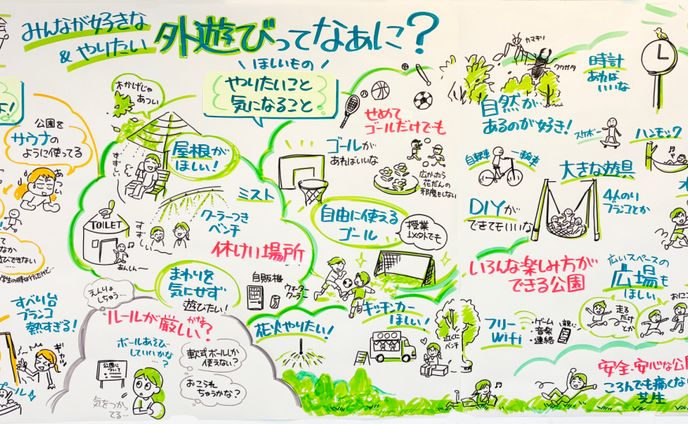 みんなが好きな
&やりたい
外遊びってなあに?
ほしいもの
やりたいこと
気になること
木かげじゃ
あつい
公園を
サウナの
ように使ってる
すずしー
屋根が
ほしい!
ミスト
クーラーつき
ベンチ
TOILET
すずしー
休けい場所
まわりを
気にせず
遊びたい!
自販機
ウォーター
クーラー
すべり台
ブランコ
熱すぎる!
えんりょ
しちゃう
ルールが厳しい?
かも
ボールあそび
していいかな?
軟式ボールか
使えない?
おこられ
ちゃうかな?
気をつかっ
てる…
花火やりたい!
せめて
ゴールだけでも
ゴールが
あればいいな
広かったら
花だんの
邪魔もない
自由に使える
ゴール
授業
以外でも
キッチンカー
ほしい!
近くに
ベンチ
カマキリ
クワガタ
自然が
あるのが好き!
時計
あれば
いいな
スケボー
ハンモック
自転車
一輪車
大きな遊具
4人のり
ブランコとか
DIYが
できてもいいな
いろんな楽しみ方が
できる公園
広いスペースの
広場も
ほしい
走る
だけ
とか
フリー
Wifi
ゲーム
音楽
連絡
安全・安心な公
ころんでも痛くな
芝生